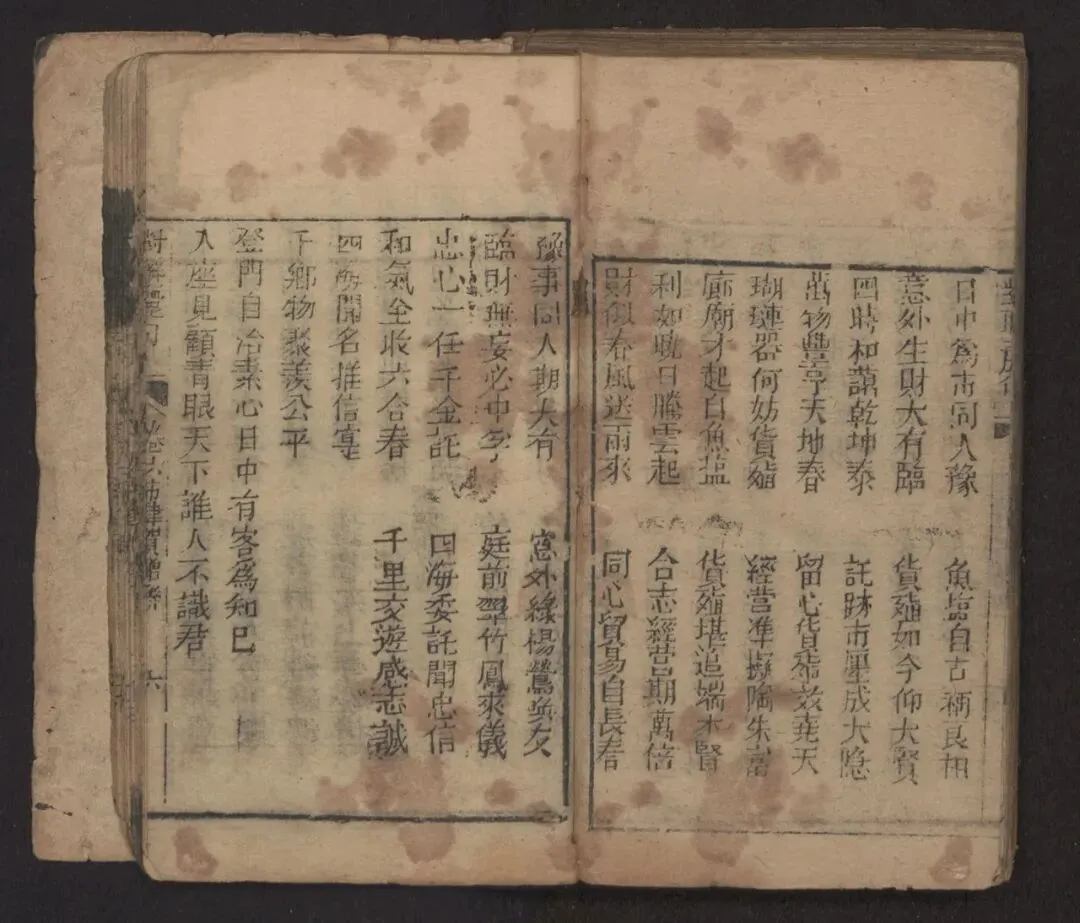 日中為市同人豫
魚鹽自古稱良相
意外生財大有臨
貨殖如今仰大賢
四時和藹乾坤泰
託跡市廛成大隱
萬物豐亨天地春
留心貨殖效堯天
瑚璉器何妨貨殖
經營準擬陶朱富
廊廟才起自魚盐
貨殖堪追端木賢
利如曉日騰雲起
合志經营期萬倍
財似春風送雨來
同心貿易自長春
豫事同人期大有
窓外綠楊鶯喚友
臨財無妄必中孚
庭前翠竹鳳來儀
忠心一任千金託
四海委託聞忠信
和氣全收六合春
千里交遊感志誠
四海聞名推信實
千鄉物聚羨公平
登門自治素心日中有客為知己
入座見顧青眼天下誰人不識君
六